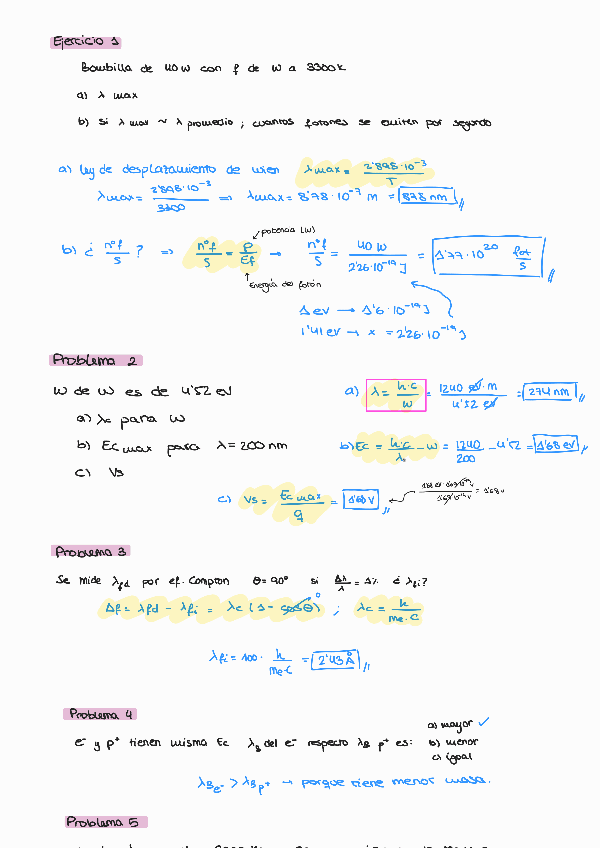 Ejercicio 1
Bombilla de 40w con f de w a 3300k
a) λ max
b) si λ max ~ λ promedio ; cuantos fotones se emiten por segundo
a) ley de desplazamiento de wien λmax = 2'898·10⁻³ / T
λmax = 2'898·10⁻³ / 3300 ⇒ λmax = 8'78·10⁻⁷ m = 878 nm //
b) ¿ nºf / S ? ⇒ nºf / S = P / Ef → nºf / S = 40 W / 2'26·10⁻¹⁹ J = 1'77·10²⁰ fot / S //
potencia (W)
Energía del fotón
1 eV → 1'6·10⁻¹⁹ J
1'41 eV → x = 2'26·10⁻¹⁹ J
Problema 2
W de W es de 4'52 eV
a) λc para W
b) Ec max para λ = 200 nm
c) Vs
a) λ = h·c / W = 1240 eV·m / 4'52 eV = 274 nm //
b) Ec = h·c / λ - W = 1240 / 200 - 4'52 = 1'68 eV //
c) Vs = Ec max / q = 1'68 V //
= 1'68 V
Problema 3
Se mide λfd por ef. Compton θ = 90º si Δλ / λ = 1% ¿ λfi?
Δf = λfd - λfi = λc (1 - cosθ) ; λc = h / me·C
0
λfi = 100 · h / me·C = 2'43 Å //
Problema 4
e⁻ y p⁺ tienen misma Ec λB del e⁻ respecto λB p⁺ es:
a) mayor ✓
b) menor
c) igual
λB e⁻ > λB p⁺ → porque tiene menor masa.
Problema 5